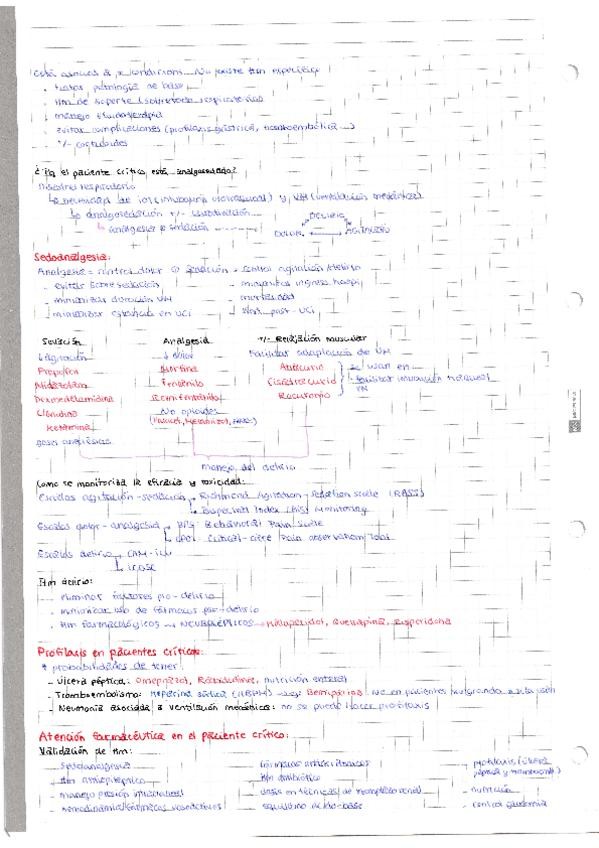 Está asociado a condiciones. No existe ttm específico
- tratar patología de base
- ttm de soporte (sobretodo respiratorio)
- manejo fluidoterapia
- evitar complicaciones (profilaxis gástrica, tromboembólica...)
- +/- corticoides
¿Xq el paciente crítico está analgosedado?
Distrés respiratorio
↳ necesidad de IOT (intubación orotraqueal) y VM (ventilación mecánica)
↳ analgosedación +/-
↳ analgesia + sedación
DELIRIO
DOLOR AGITACIÓN
Sedoanalgesia:
Analgesia = control dolor Sedación = control agitación/delirio
- evitar sobresedación
- minimizar duración VM
- minimizar estancia en UCI
- reingreso hospi.
- mortalidad
- post-UCI
Sedación Analgesia +/- Relajación muscular
↓ agitación ↓ dolor Facilitar adaptación de VM
Propofol Morfina Atracurio se usan en
Midazolam Fentanilo Cisatracurio facilitar intubación traqueal
Dexmedetomidina Remifentanilo Rocuronio VM
Clonidina No opioides
Ketamina (Paracet, Metamizol, AINEs)
gases anestésicos
manejo del delirio
Como se monitoriza la eficacia y toxicidad:
Escalas agitación-sedación Richmond Agitation-Sedation Scale (RASS)
Bispectral Index (BIS) Monitoring
Escalas dolor-analgesia BPS: Behavioral Pain Scale
CPOT: Critical-Care Pain Observation Tool
Escalas delirio CAM-ICU
ICDSC
Ttm delirio:
- eliminar factores pro-delirio
- minimizar uso de fármacos pro-delirio
- ttm farmacológicos → NEUROLÉPTICOS → Haloperidol, Quetiapina, Risperidona
Profilaxis en pacientes críticos:
↑ probabilidades de tener:
- Úlcera péptica: omeprazol, Ranitidina, nutrición enteral
- Tromboembolismo: heparina sódica (HBPM) → Bemiparina. No en pacientes
- Neumonía asociada a ventilación mecánica: no se puede hacer profilaxis
Atención farmacéutica en el paciente crítico:
Validación de ttm:
- sedoanalgesia - fármacos antiarrítmicos - profilaxis (úlcera
- ttm antiepiléptico - ttm antibiótico péptica y tromboembo)
- manejo presión intracraneal - dosis en técnicas de reemplazo renal - nutrición
- hemodinámica/fármacos vasoactivos - equilibrio ácido-base - control glucemia